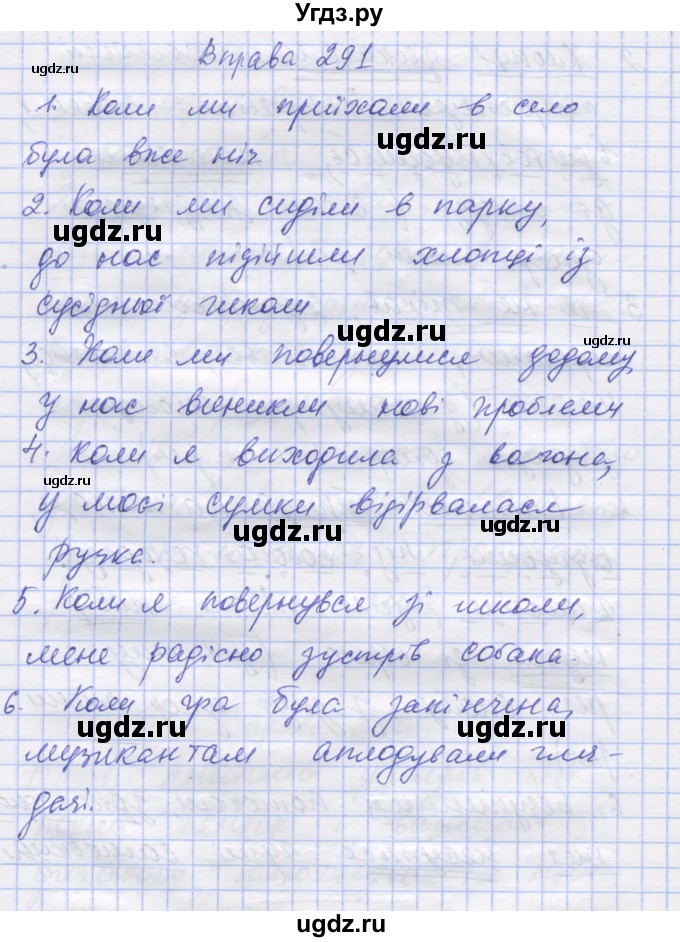 Угдз.ру
Вправа 291
1. Коли ми приїхали в село
була вже ніч
2. Коли ми сиділи в парку,
до нас підійшли хлопці із
сусідньої школи
3. Коли ми повернулися додому,
у нас виникли нові проблеми
4. Коли я виходила з вагона,
у моєї сумки відірвалася
ручка.
5. Коли я повернувся зі школи,
мене радісно зустрів собака.
6. Коли гра була закінчена,
музикантам аплодували гля-
дачі.
ugdz.ru
ugdz.ru
ugdz.ru
ugdz.ru
ugdz.ru
ugdz.ru
ugdz.ru
ugdz.ru
ugdz.ru
ugdz.ru
ugdz.ru
ugdz.ru
ugdz.ru